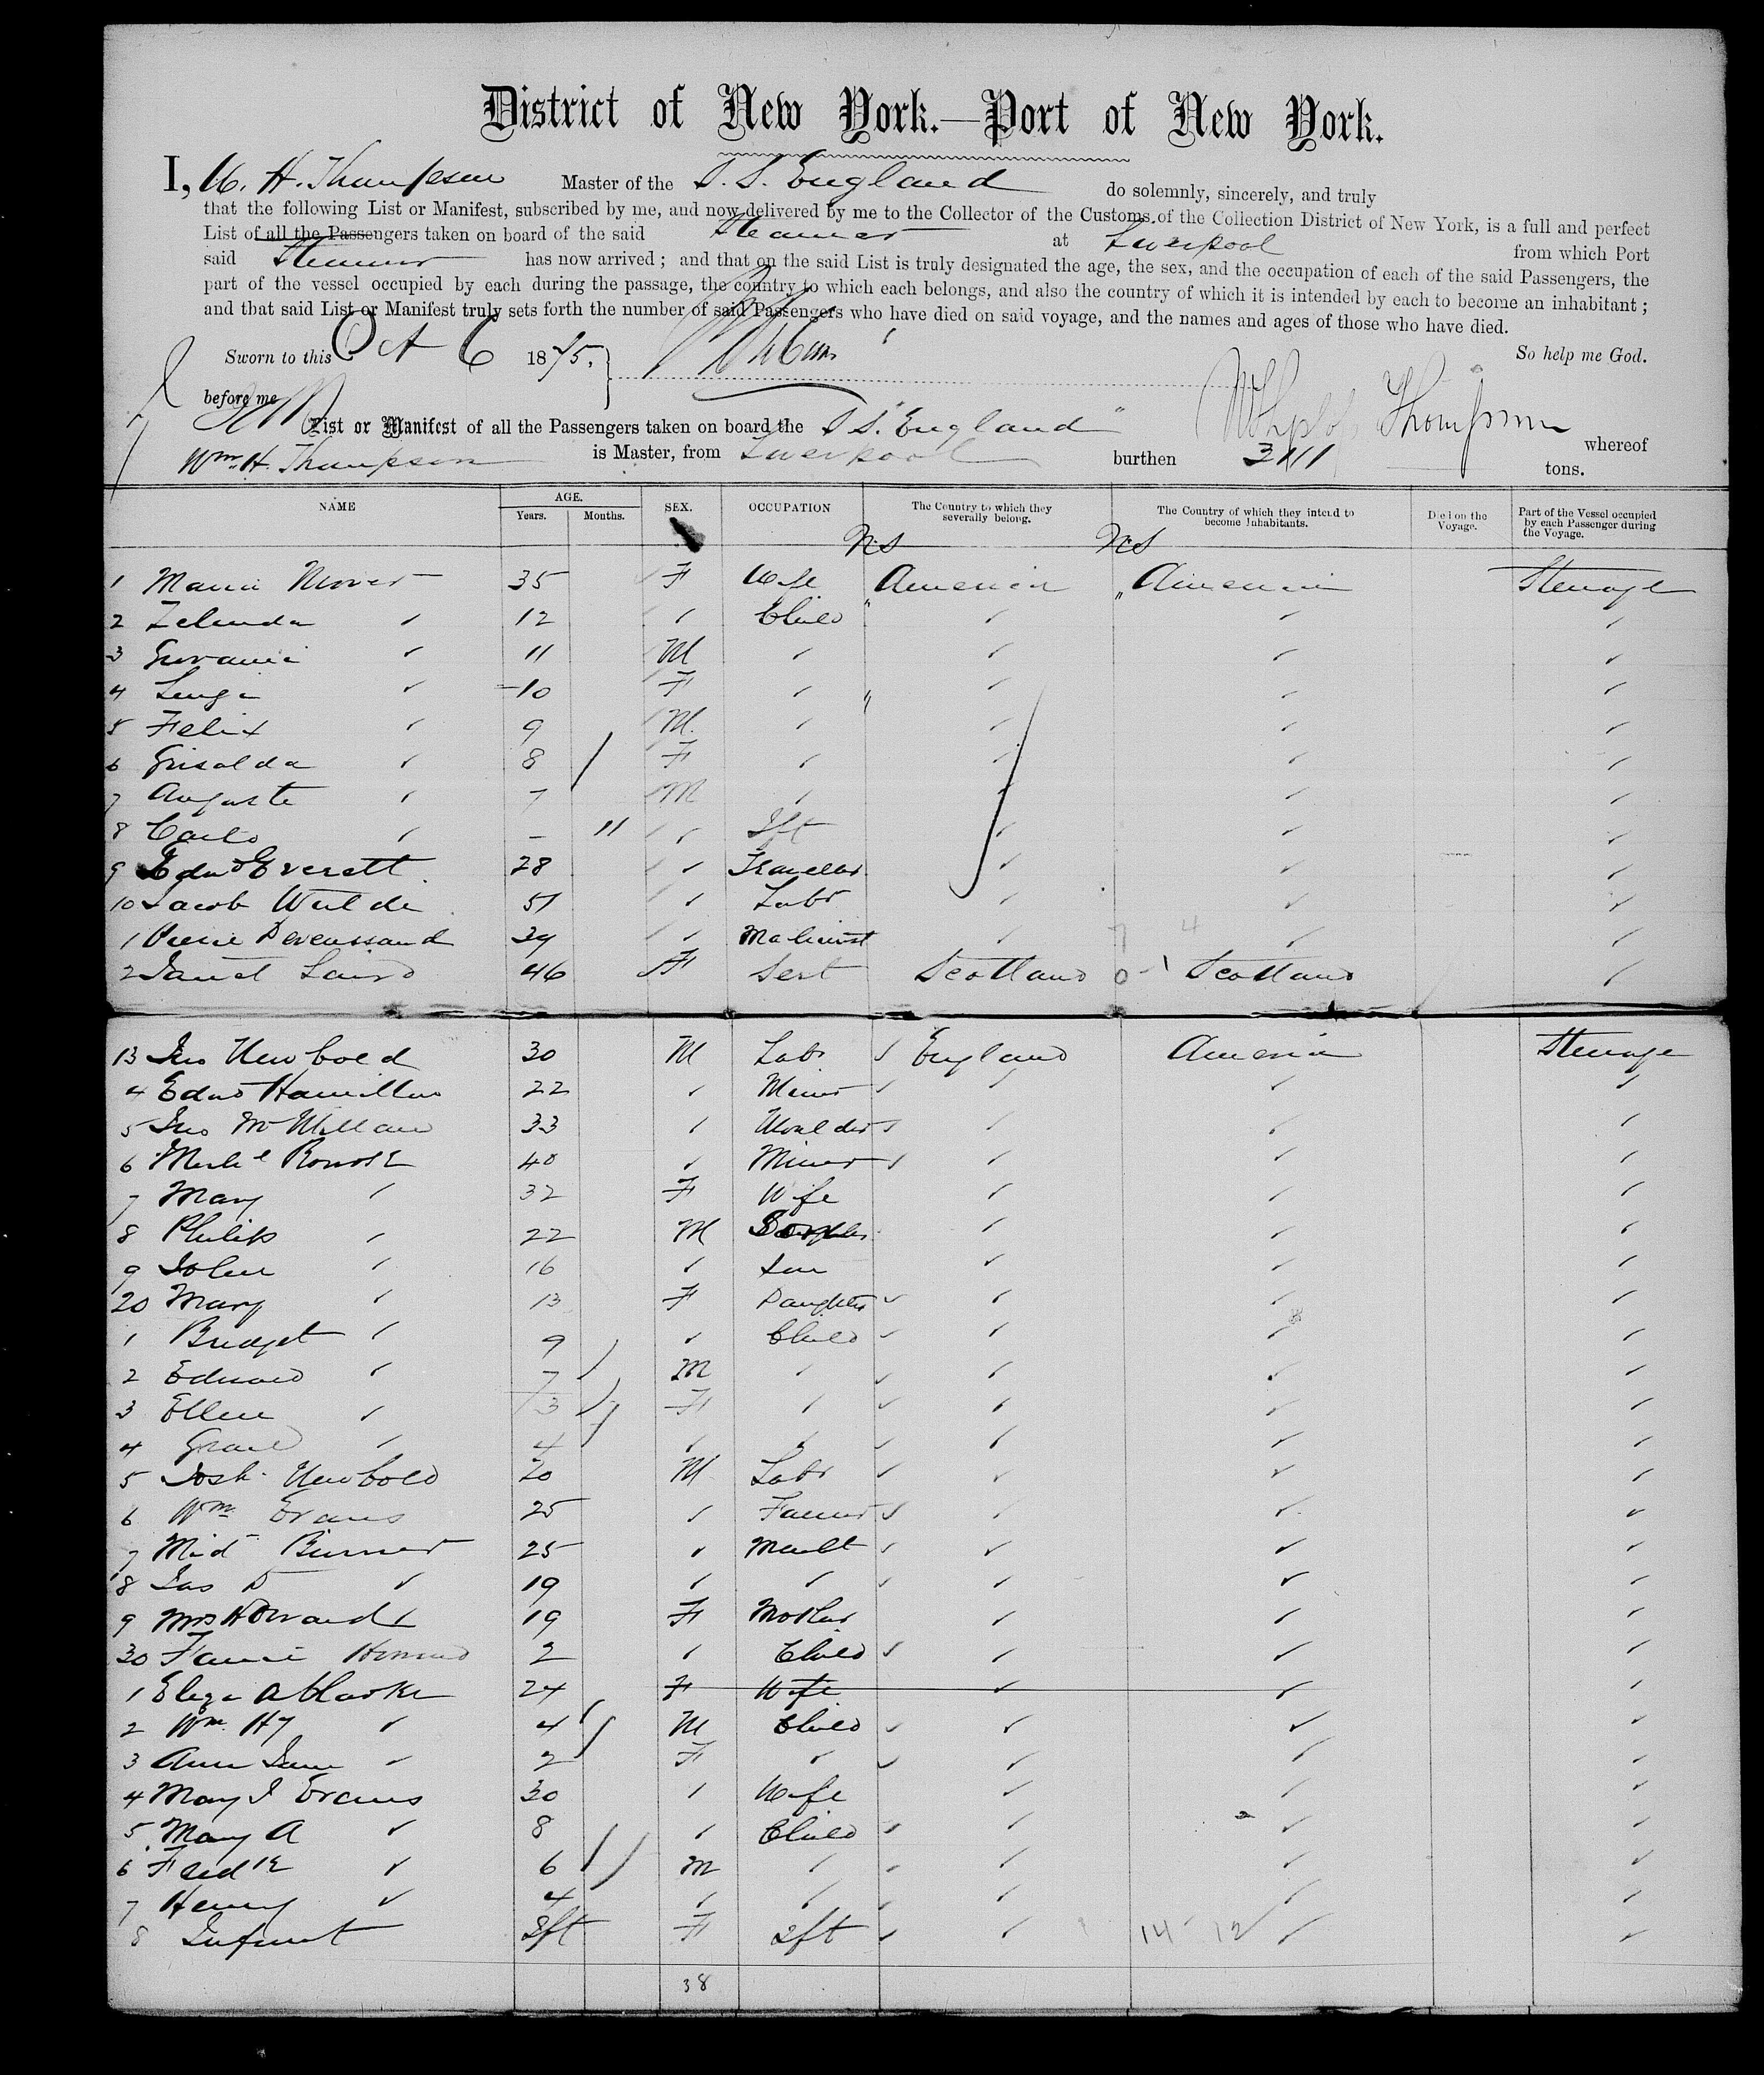 District of New York.—Port of New York.
I, W. H. Thompson Master of the S. S. England do solemnly, sincerely, and truly
that the following List or Manifest, subscribed by me, and now delivered by me to the Collector of the Customs of the Collection District of New York, is a full and perfect
List of all the Passengers taken on board of the said Steamer at Liverpool from which Port
said Steamer has now arrived; and that on the said List is truly designated the age, the sex, and the occupation of each of the said Passengers, the
part of the vessel occupied by each during the passage, the country to which each belongs, and also the country of which it is intended by each to become an inhabitant;
and that said List or Manifest truly sets forth the number of said Passengers who have died on said voyage, and the names and ages of those who have died.
Sworn to this Oct 6 1875. So help me God.
before me Thompson
List or Manifest of all the Passengers taken on board the S S. "England" whereof
Wm. H. Thompson is Master, from Liverpool burthen 3111 tons.
NAME AGE. Years. Months. SEX. OCCUPATION The Country to which they severally belong. The Country of which they intend to become Inhabitants. Died on the Voyage. Part of the Vessel occupied by each Passenger during the Voyage.
1 Maria 35 F Wife America America Steerage
2 Zelinda " 12 " Child " " "
3 " 11 M " " " "
4 " 10 F " " " "
5 Felix " 9 M. " " " "
6 Grisalda " 8 F " " " "
7 Auguste " 7 M " " " "
8 Carlo " - 11 " Ift " " "
9 Edwd Everett 28 " Traveller " " "
10 Jacob 51 " Labr " " "
1 39 " Machinist " " "
2 Janet Laird 46 F Servt Scotland Scotland "
13 Jno Newbold 30 M Labr England America Steerage
4 Edwd Hamilton 22 " Miner " " "
5 Jno McMillan 33 " Moulder " " "
6 40 " Miner " " "
7 Mary " 32 F Wife " " "
8 Philip " 22 M Son " " "
9 John " 16 " Son " " "
20 Mary " 13 F Daughter " " "
1 Bridget " 9 " Child " " "
2 Edward " 7 M " " " "
3 Ellen " 3 F " " " "
4 " 4 " " " " "
5 Josh. Newbold 20 M Labr " " "
6 Wm. Evans 25 " Farmer " " "
7 25 " " " "
8 Jas D " 19 " " " " "
9 Mrs Howard 19 F Mother " " "
30 Fannie Howard 2 " Child " " "
1 Eliza A Clarke 24 F Wife " " "
2 Wm. Hy " 4 M Child " " "
3 Ann Jane " 2 F " " " "
4 Mary J Evans 30 " Wife " " "
5 Mary A " 8 " Child " " "
6 Fredk " 6 M " " " "
7 Henry " 4 " " " " "
8 Infant Ift F Ift " 14 12 " "
38